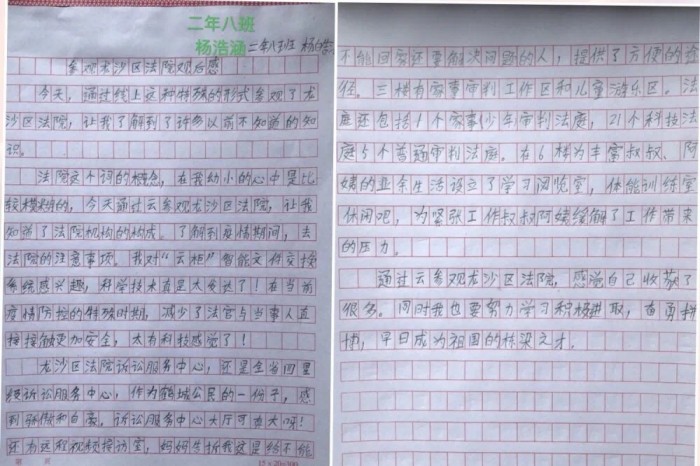 二年八班
杨浩涵 二年八班 杨浩涵
参观龙沙区法院观后感
今天，通过线上这种特殊的形式参观了龙
沙区法院，让我了解到了许多以前不知道的知
识。
法院这个词的概念，在我幼小的心中是比
较模糊的，今天通过云参观龙沙区法院，让我
知道了法院机构的构成。了解到疫情期间，去
法院的注意事项。我对“云柜”智能文件交接
系统感兴趣，科学技术真是太发达了！在当前
疫情防控的特殊时期，减少了法官与当事人直
接接触更加安全，太有科技感觉了！
龙沙区法院诉讼服务中心，还是全省四星
级诉讼服务中心，作为鹤城公民的一份子，感
到骄傲和自豪。诉讼服务中心大厅可真大呀！
还有远程视频接访室，妈妈告诉我这是给不能
15×20=300
不能回家还要解决问题的人，提供了方便的途
径。三楼有家事审判工作区和儿童游乐区。法
庭还包括1个家事少年审判法庭，21个科技法
庭5个普通审判法庭。在6楼为丰富叔叔、阿
姨的业余生活设立了学习阅览室，体能训练室
休闲吧，为紧张工作叔叔阿姨缓解了工作带来
的压力。
通过云参观龙沙区法院，感觉自己收获了
很多。同时我也要努力学习积极进取，奋勇拼
搏，早日成为祖国的栋梁之才。